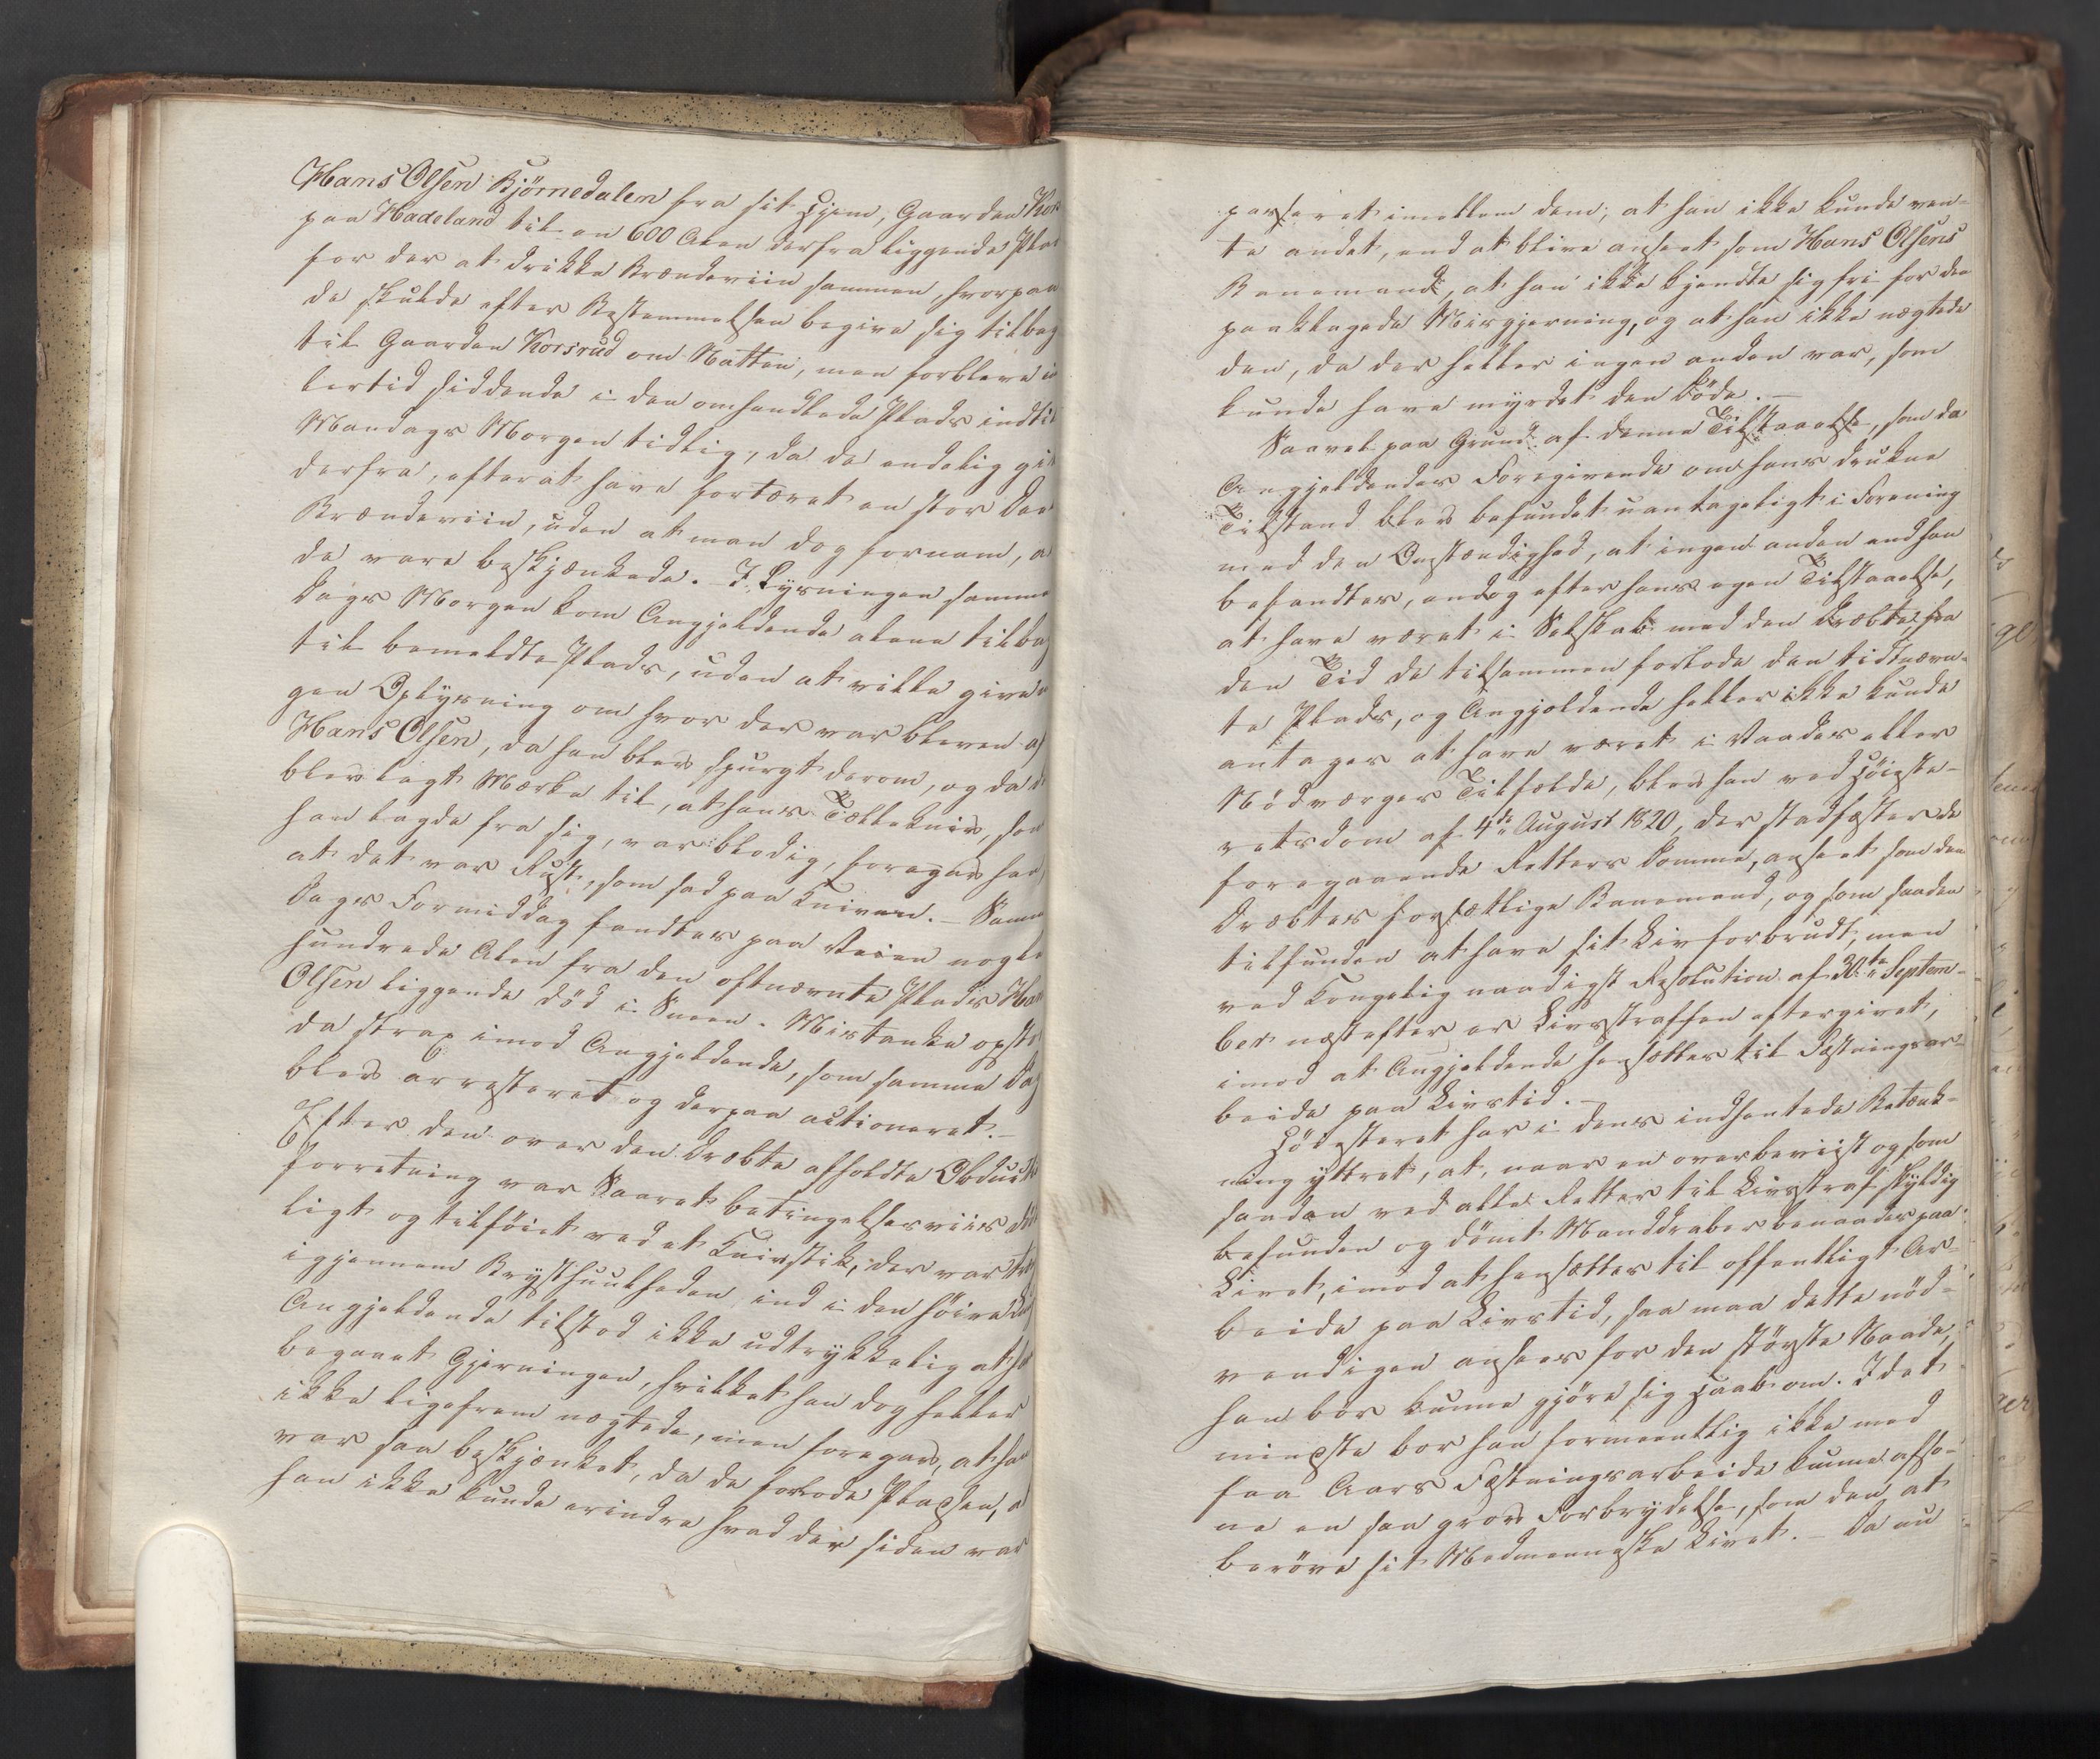 Hans Olsen Bjørnedalen fra sit Hjem, Gaarden Kors
paa Hadeland til en 600 Alen derfra liggende Plad
for der at drikke Brændeviin sammen, hvorpaa
de skulde efter Bestemmelsen begive sig tilbag
til Gaarden Korsrud om Natten, men forbleve i
lertid siddende i den omhandlede Plads indtil
Mandags Morgen tidlig, da de endelig gik
derfra, efterat have fortæret en stor Deel
Brændeviin, uden at man dog fornam, a
de vare beskjænkede. I Lysningen samme
Dags Morgen kom Angjeldende alene tilba
til bemeldte Plads, uden at ville give
gen Oplysning om hvor der var bleven af
Hans Olsen, da han blev spurgt derom, og da d
blev lagt Mærke til, at hans Tælleknev, som
han lagde fra sig, var blodig, foregav han,
at det var Rust, som sad paa Kniven. – Samme
Dags Formiddag fandtes paa Veien nogle
hundrede Alen fra den oftnævnte Plads Han
Olsen liggende død i Sneen. Mistanke opsto
da strax imod Angjeldende, som samme Dag
blev arresteret og derpaa actioneret. –
Efter den over den Dræbte afholdte Obducti
forretning var Saaret betingelsesviis død
ligt og tilføiet ved et Knivstik, der var træ
igjennem Brysthuulheden ind i den høire Lun
Angjeldende tilstod ikke udtrykkelig at ha
begaaet Gjerningen, hvilket han dog heller
ikke ligefrem nægtede, men foregav, at han
var saa beskjænket, da de forlode Pladsen, a
han ikke kunde erindre hvad der siden var
passeret imellem dem; at han ikke kunde ven-
te andet, end at blive anseet som Hans Olsens
Banemand, at han ikke kjendte sig fri for den
paaklagede Misgjerning, og at han ikke nægtede
den, da der heller ingen anden var, som
kunde have myrdet den Døde. –
Saavel paa Grund af denne Tilstaaelse, som da
Angjeldendes Foregivende om hans drukne
Tilstand blev befundet uantageligt i Forening
med den Omstændighed, at ingen anden end han
befandtes, endog efter hans egen Tilstaaelse,
at have været i Selskab med den Dræbte, fra
den Tid de tilsammen forlode den tidtnævn-
te Plads, og Angjeldende heller ikke kunde
antages at have været i Vaades eller
Nødværges Tilfælde, blev han ved Høieste-
retsdom af 4de August 1820, der stadfæster de
foregaaende Retters Domme, anseet som den
Dræbtes forsætlige Banemand, og som saadan
tilfunden at have sit Liv forbrudt, men
ved Kongelig naadigst Resolution af 30te Septem-
ber næstefter er Livsstraffen eftergivet,
imod at Angjeldende hensættes til Fæstningsar-
beide paa Livstid. –
Høiesteret har i dens indhentede Betænk-
ning yttret, at, naar en overbeviist og som
saadan ved alle Retter til Livsstraf skyldig
befunden og dømt Manddraber benaades paa
Livet, imod at hensættes til offentligt Ar-
beide paa Livstid, saa maa dette nød-
vendigen ansees for den største Naade,
han bør kunne gjøre sig Haab om. I det
mindste bør han formeentlig ikke med
faa Aars Fæstningsarbeide kunne afso-
ne en saa grov Forbrydelse, som den at
berøve sit Medmenneske Livet. – Da nu